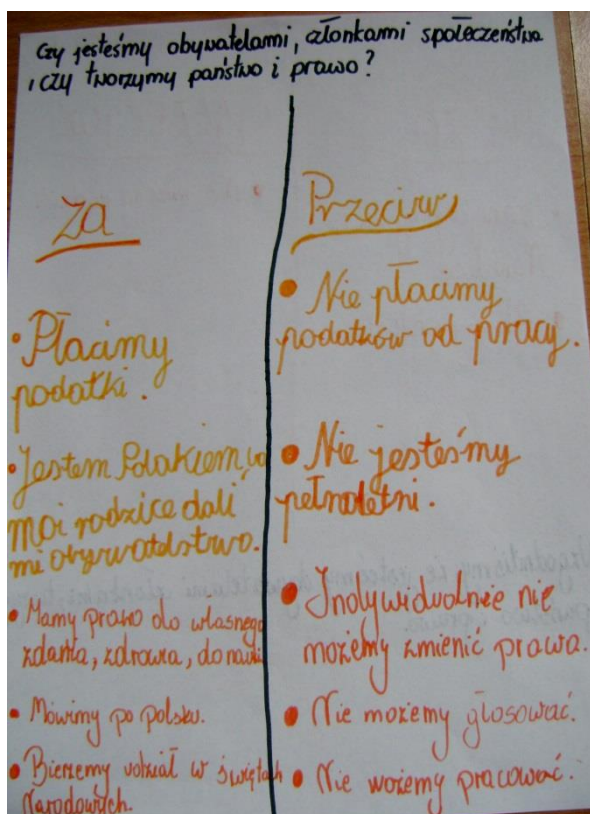 Czy jesteśmy obywatelami, członkami społeczeństwa
i czy tworzymy państwo i prawo?
Za
• Płacimy
podatki.
• Jestem Polakiem bo
moi rodzice dali
mi obywatelstwo.
• Mamy prawo do własnego
zdania, zdrowia, do nauki.
• Mówimy po polsku.
• Bierzemy udział w świętach
Narodowych.
Przeciw
• Nie płacimy
podatków od pracy.
• Nie jesteśmy
pełnoletni.
• Indywidualnie nie
możemy zmienić prawa.
• Nie możemy głosować.
• Nie możemy pracować.